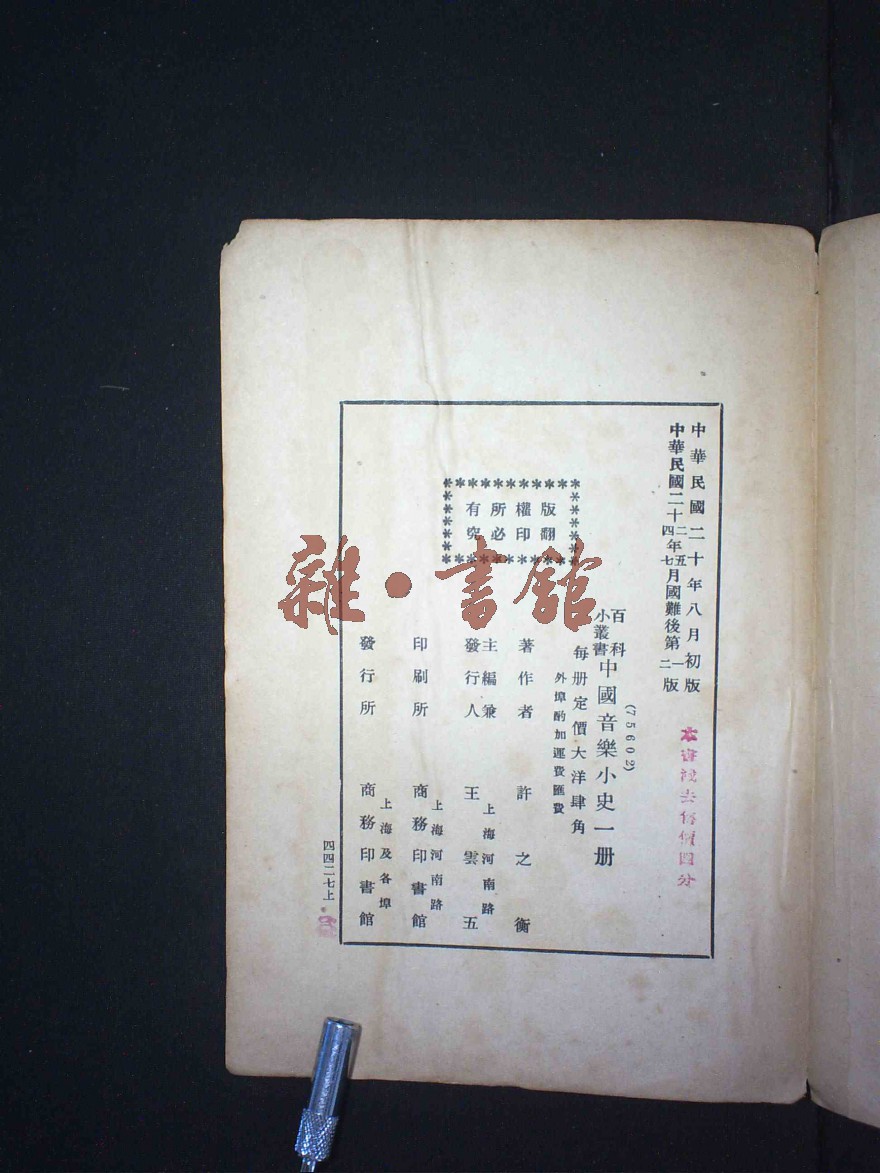 中華民國二十年八月初版
中華民國二十二年五月國難後第一版
四 七 二
本書 去 價四分
(75602)
百科小叢書 中國音樂小史一册
每册定價大洋肆角
外埠酌加運費匯費
版權所有
翻印必究
著作者 許之衡
主編兼發行人 上海河南路 王雲五
印刷所 上海河南路 商務印書館
發行所 上海及各埠 商務印書館
四四二七上
雜·書館